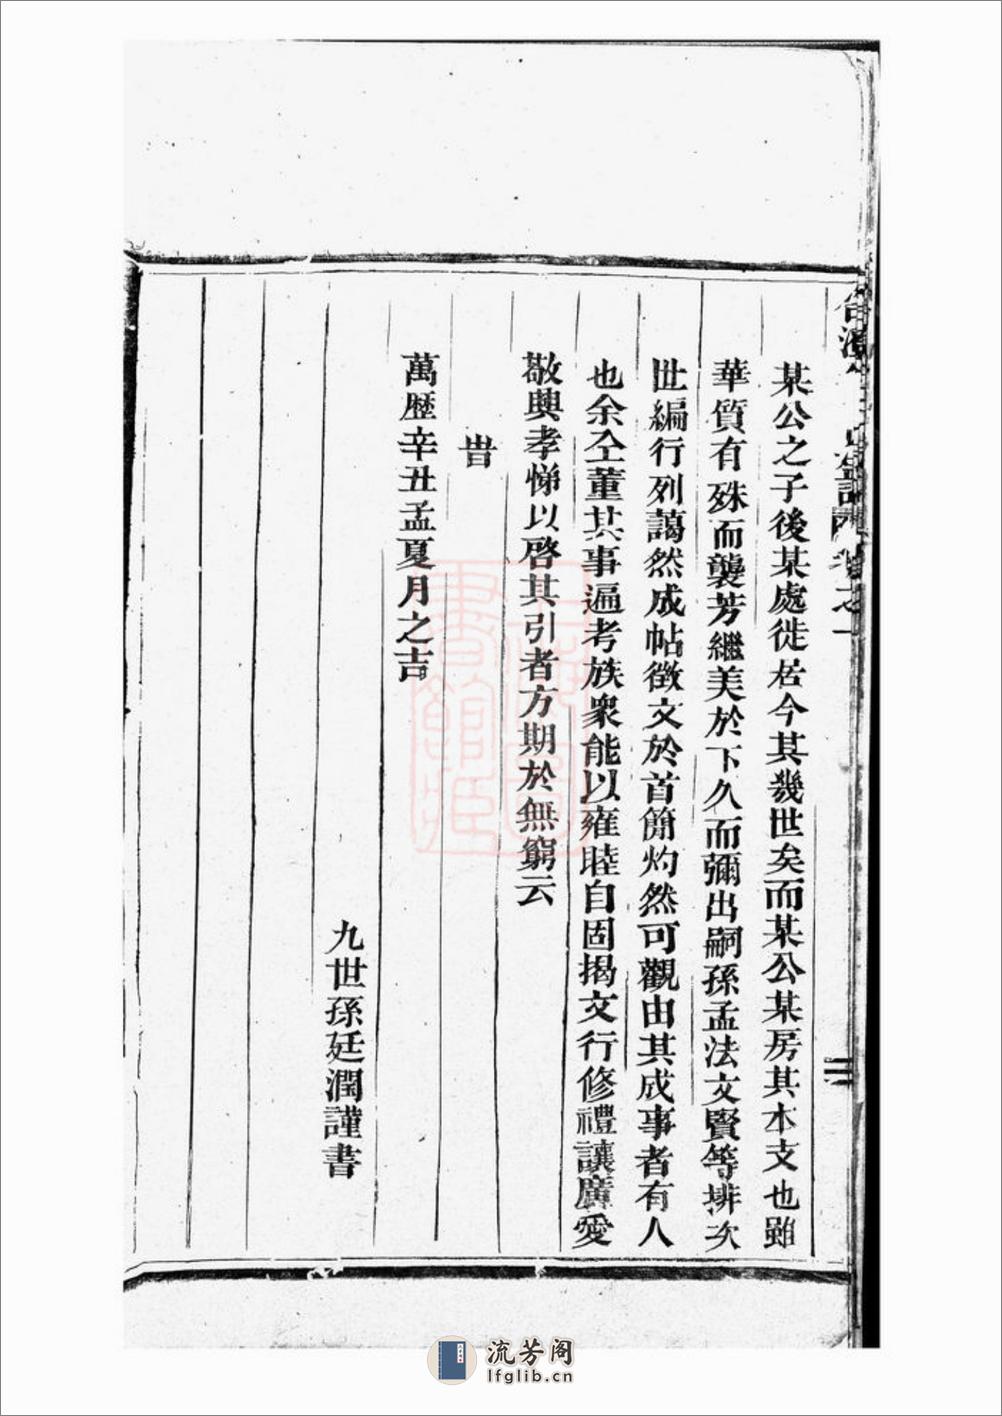 某公之子後某處徙居今其幾世矣而某公某房其本文也雖
華質有殊而襲芳繼美於下久而彌出嗣孫孟法文賢等排次
世編行列藹然成帖徵文於首簡灼然可觀由其成事者有人
也余仝董其事遍考族衆能以雍睦自固揭文行修禮讓廣愛
敬興孝悌以啓其引者方期於無窮云
旹
萬歷辛丑孟夏月之吉
九世孫廷潤謹書
卷之一
二
流芳阁
lfglib.cn